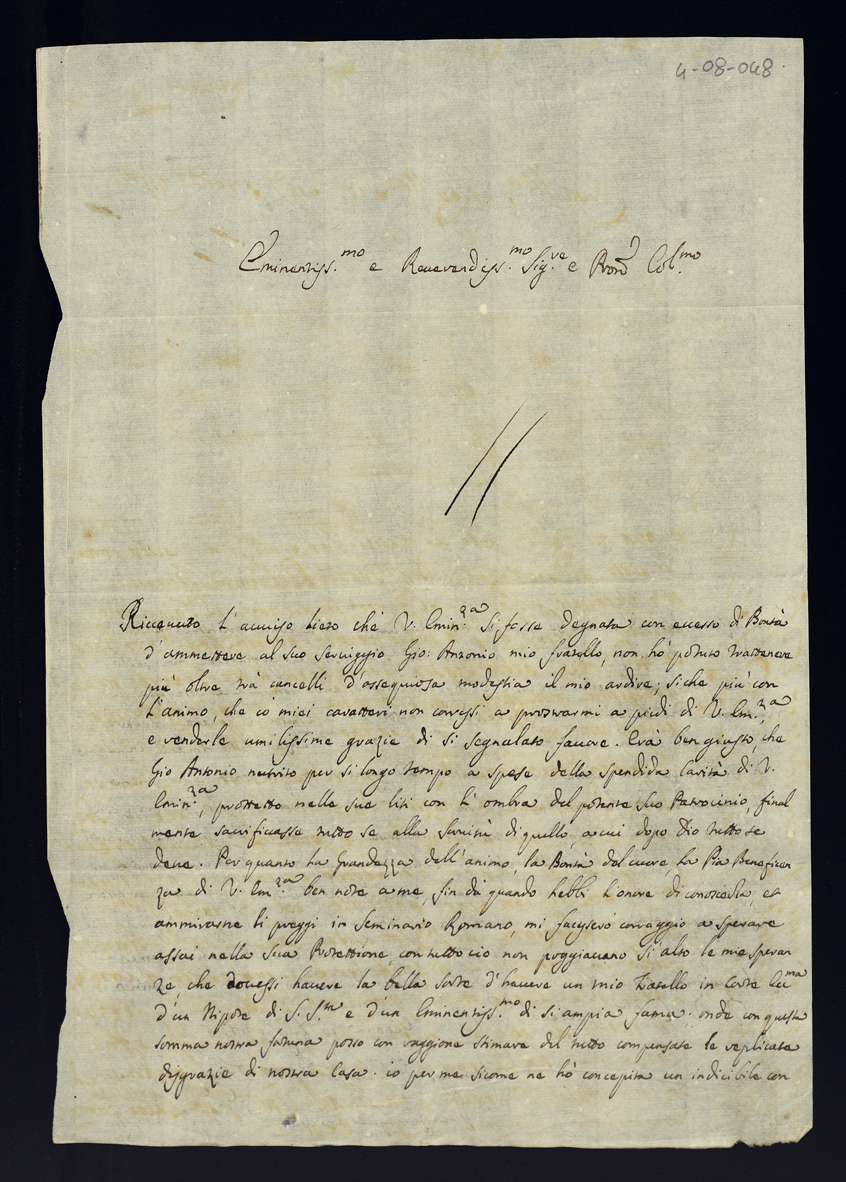 4-08-048
Eminentiss.mo e Reuerendiss.mo Sig.re e Pron Col.mo
Riceuuto l'auuiso lieto che V. Emin.za si fosse degnata con eccesso di Bontà
d'ammettere al suo seruiggio Gio: Antonio mio fratello, non hò potuto trattenere
più oltre trà cancelli d'ossequiosa modestia il mio ardire; siche più con
l'animo, che cò miei caratteri non corressi a prostrarmi a piedi di V. Em.za,
e renderle umilissime grazie di si segnalato fauore. Erà ben giusto, che
Gio Antonio nutrito per si longo tempo a spese della spendida Carità di V.
Emin.za, protetto nelle sue liti con l'ombra del potente suo Patrocinio, final
mente sacrificasse tutto se alla seruitù di quello, a cui dopo Dio tutto se
deue. Per quanto la Grandezza dell'animo, la Bontà del cuore, la Pia Beneficen
za di V. Em.za ben note a me, fin dà quando hebbi l'onore di conoscerla, et
ammirarne li preggi in Seminario Romano, mi facessero corraggio a sperare
assai nella sua Protettione, con tutto cio non poggiauano si alto le mie speran
ze, che douessi hauere la bella sorte d'hauere un mio fratello in Corte
d'un Nipote di S. S.tà e d'un Eminentiss.mo di si ampia fama; onde con questa
somma nostra fortuna posso con raggione stimare del tutto compensate le replicate
disgrazie di nostra Casa. io per me sicome ne hò concepita un indicibile con